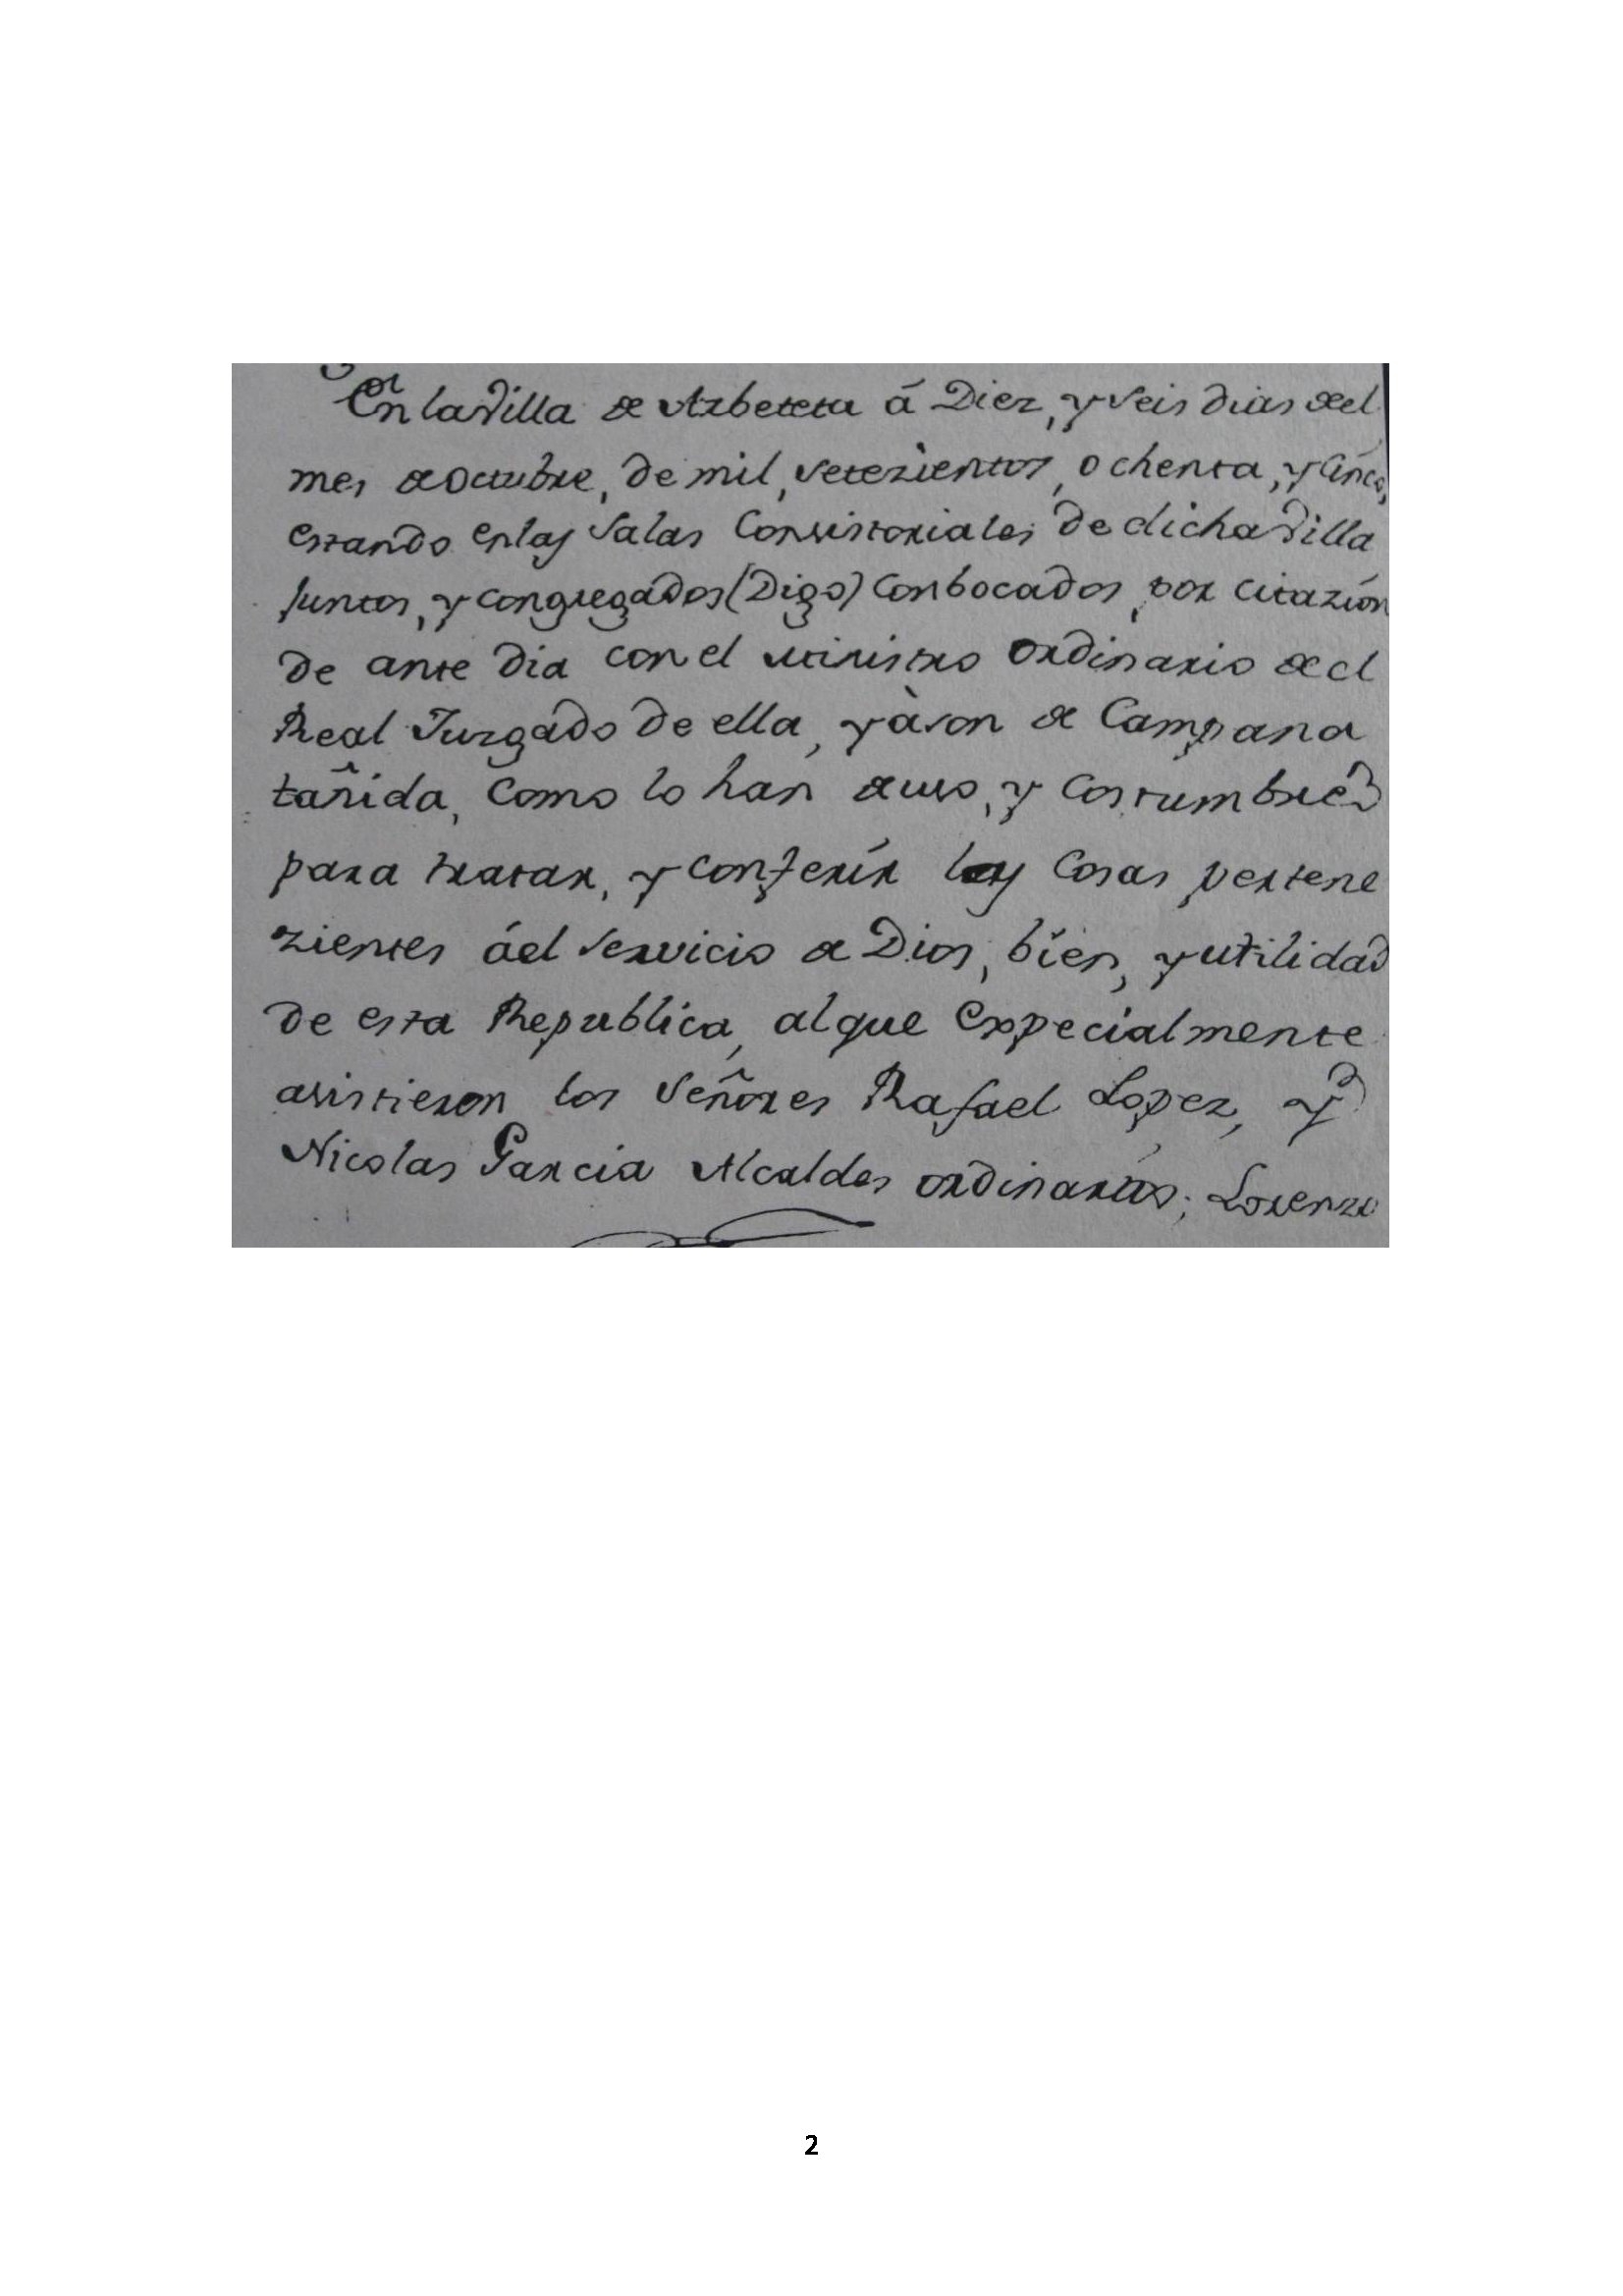 En la Villa de Arbeteta á Diez, y seis dias del
mes de octubre, de mil, setezientos, ochenta, y cinco,
estando en las Salas Consistoriales de dicha Villa
Juntos, y congregados (Digo) Conbocados, por citazión
de ante dia con el Ministro ordinario del
Real Juzgádo de ella, y à son de Campana
tañida, Como lo han de uso, y Costumbre
para tratar, y conferír las Cosas pertene
zientes áel servicio de Dios, bien, y utilidad
de esta Republica, al que Expecialmente
asistieron los Señores Rafael Lopez, y
Nicolas Garcia Alcaldes ordinarios; Lorenzo
2